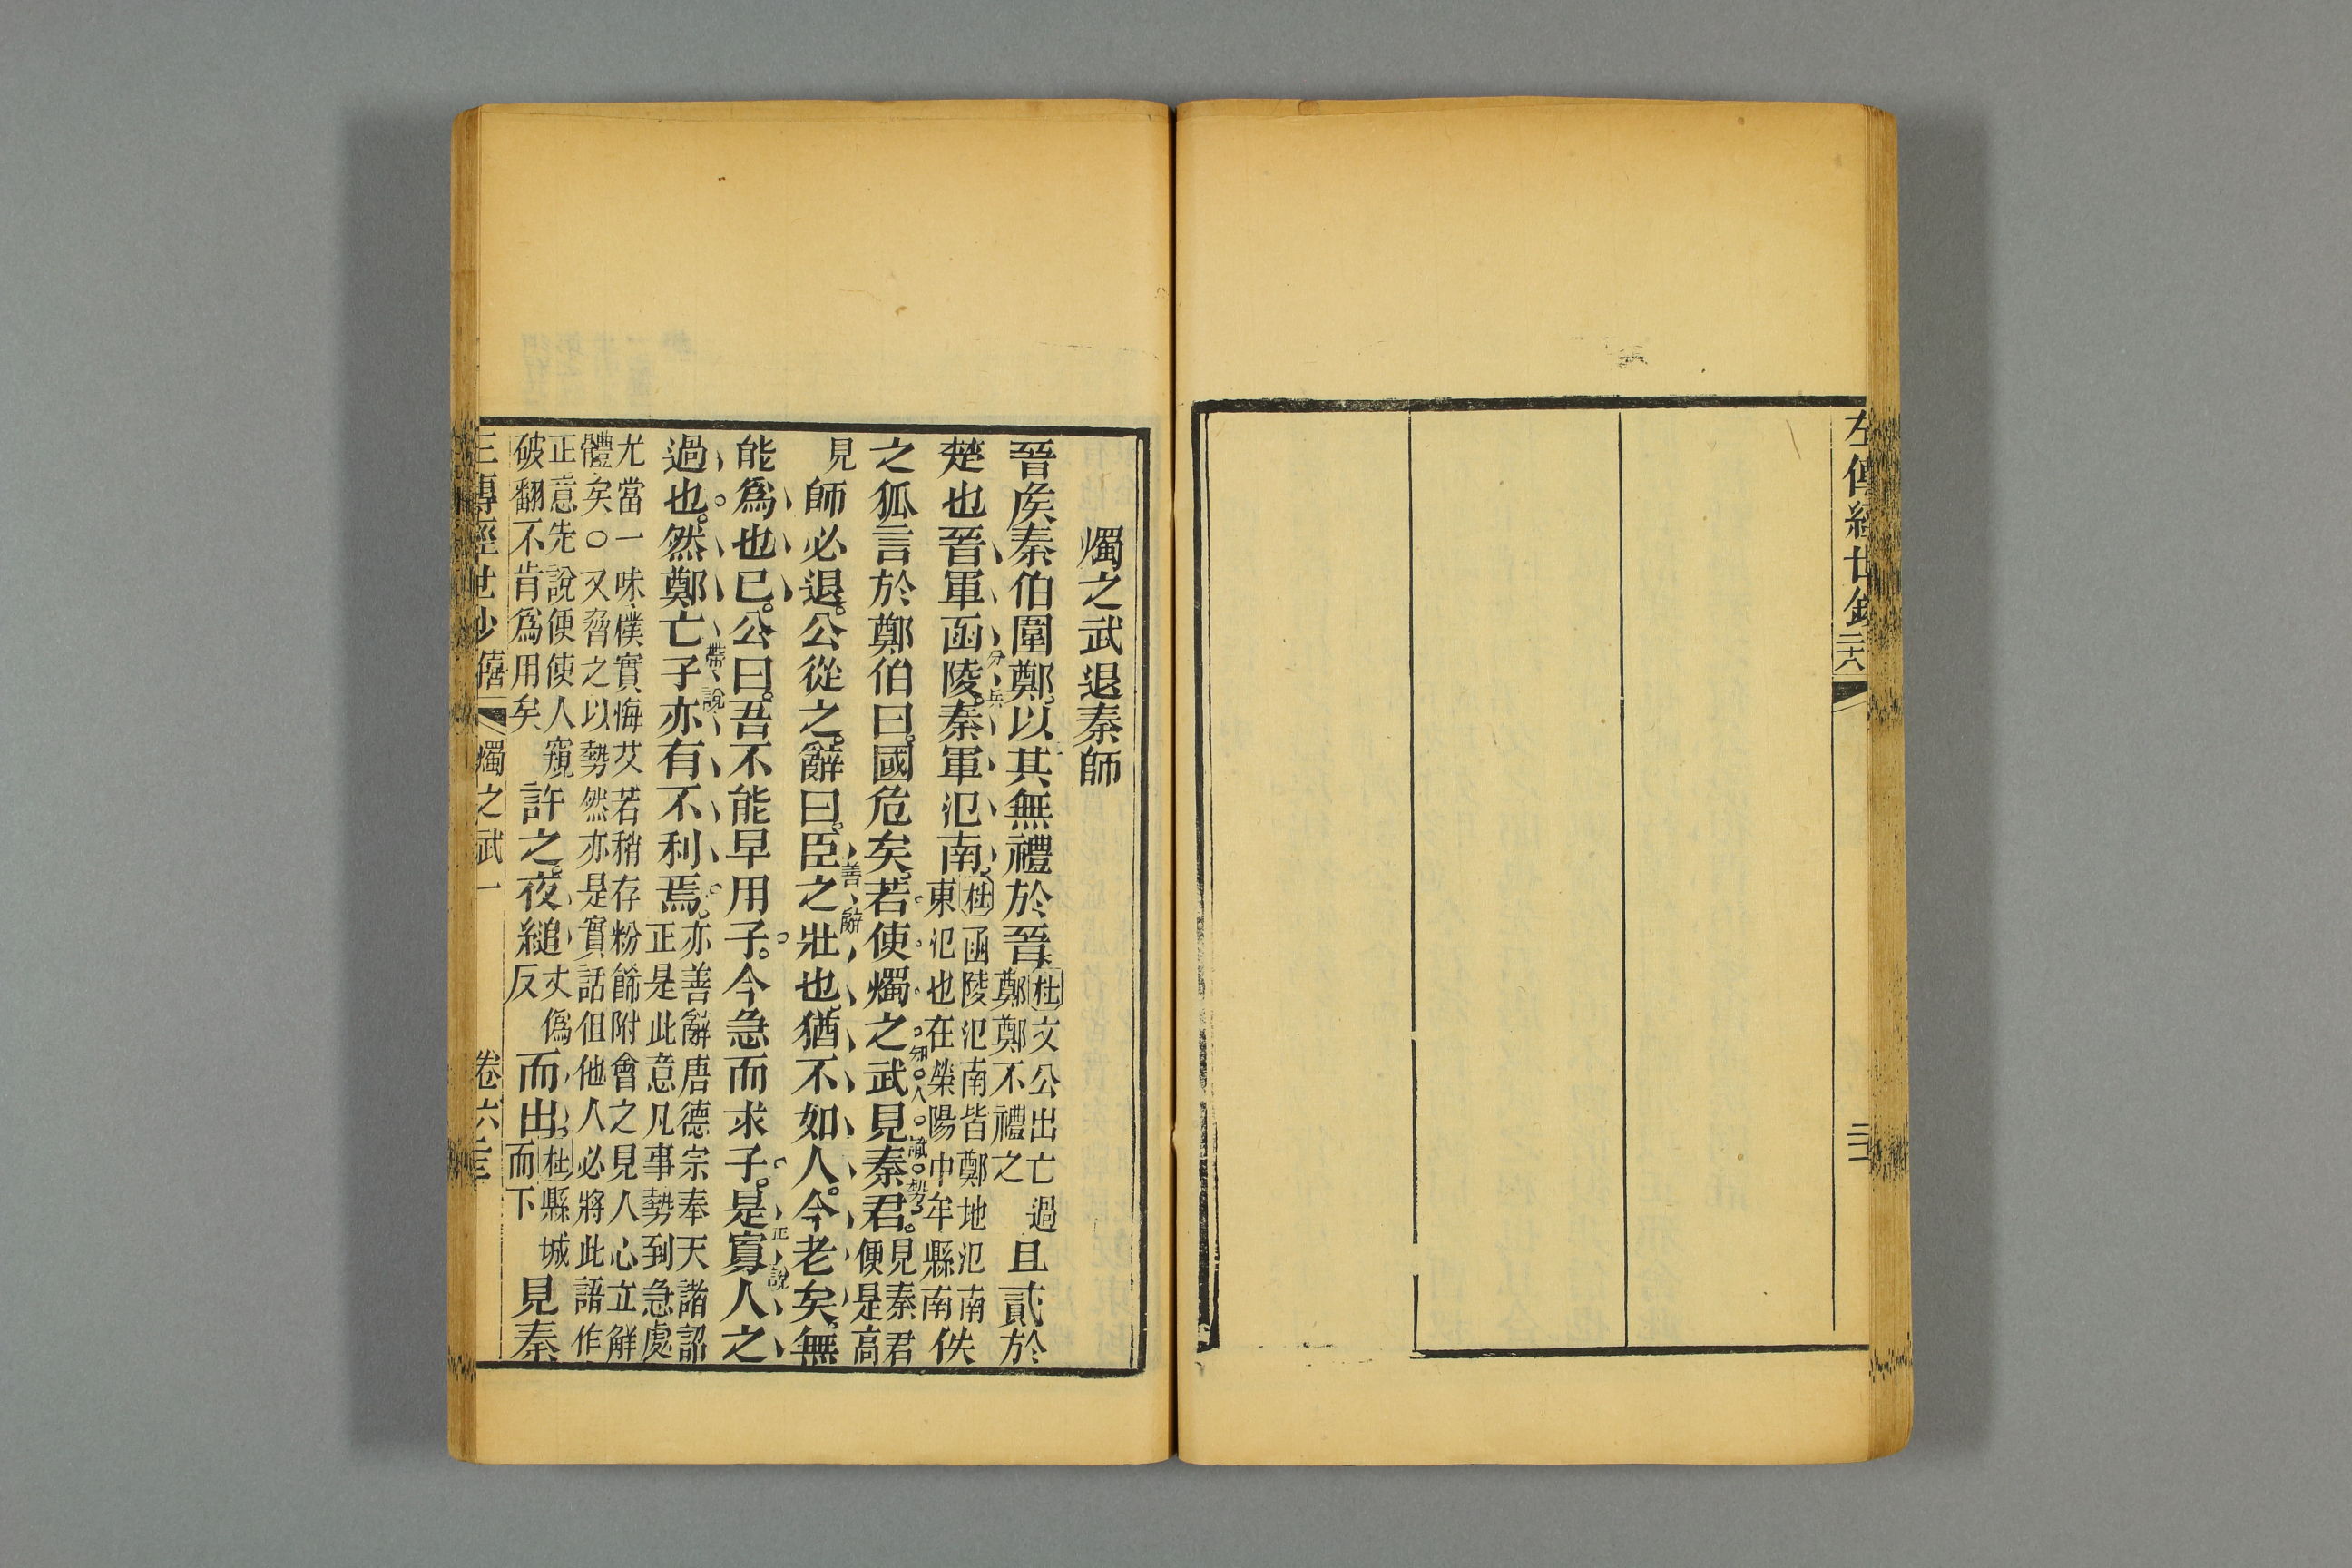 左傳經世鈔
燭之武退秦師
晉矦秦伯圍鄭以其無禮於晉杜文公出亡過鄭鄭不禮之且貳於
楚也晉軍函陵秦軍氾南杜函陵氾南皆鄭地氾南東氾也在滎陽中牟縣南佚
之狐言於鄭伯曰國危矣若使燭之武見秦君見秦君便是高
見師必退公從之辭曰臣之壯也猶不如人今老矣無
能爲也已公曰吾不能早用子今急而求子是寡人之
過也然鄭亡子亦有不利焉亦善辭唐德宗奉天諸詔正是此意凡事勢到急處
尤當一味樸實悔艾若稍存粉餙附會之見人心立解
體矣○又脅之以勢然亦是實話但他人必將此語作
正意先說便使人窺破翻不肯爲用矣許之夜縋丈僞反而出杜縣城而下見秦
分兵
知人識勢
善辭
正說
帶說
左傳經世鈔 僖 燭之武 一 卷六